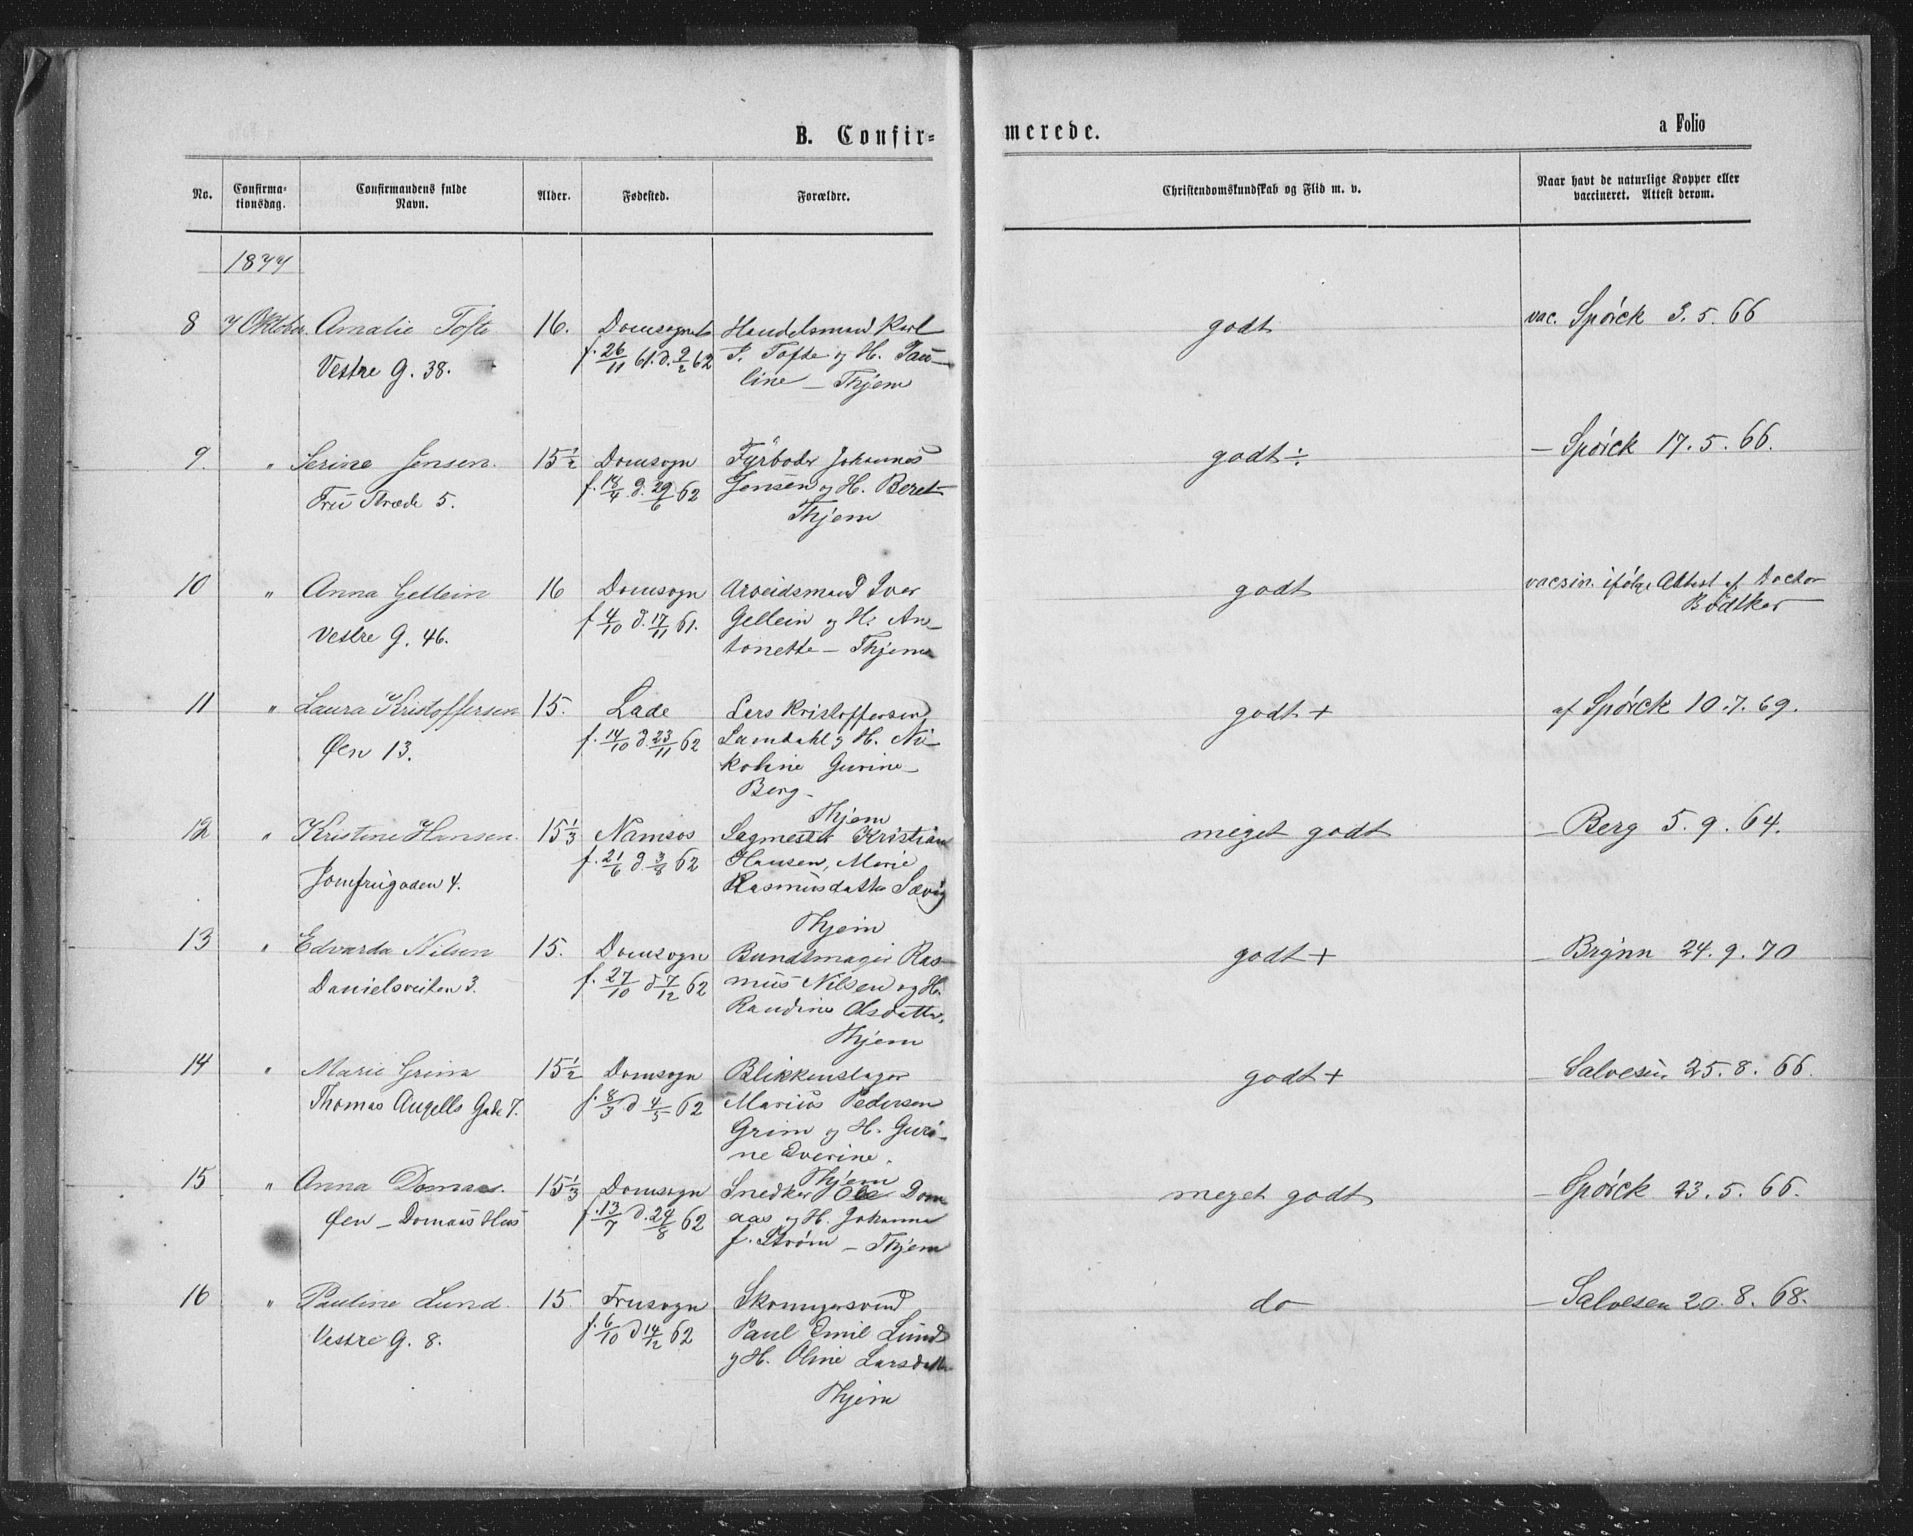 B. Confir=
merede.
a Folio
No.
Confirma-
tionsdag.
Confirmandens fulde
Navn.
Alder.
Fødested.
Forældre.
Christendomskundskab og Flid m. v.
Naar havt de naturlige Kopper eller
vaccineret. Attest derom.
1877
8 7 Oktober. Amalie Tofte 16. Domsognet Handelsmand Karl godt vac. Spörck 3.5.66
Vestre G. 38. f. 26/11 61. d. 9/2 62 P. Tofte og H. Pau-
line — Thjem
9. " Serine Jensen. 15½ Domsogn Fyrböder Johannes godt ÷ — Spörck 17.5.66.
Fru Stræde 5. f. 18/4 d. 29/6 62 Jensen og H. Beret
Thjem
10 " Anna Gellein 16 Domsogn Arbeidsmand Iver godt vacsin. ifölge Attest af Doctor
Bödtker
Vestre G. 46. f 4/10 d. 17/11 61. Gellein og H. An-
tonette — Thjem
11 " Laura Kristoffersen 15. Lade Lars Kristoffersen godt + af Spörck 10.7.69.
Øen 13. f. 14/10 d. 23/11 62 Lamdahl og H. Ni-
koline Gurine
Berg —
Thjem
12 " Kristine Hansen. 15⅓ Namsos Sagmester Kristian meget godt — Berg 5.9.64.
Jomfrugaden 4. f. 21/6 d. 3/8 62 Hansen, Marie
Rasmusdatter
Thjem
13 " Edvarda Nilsen 15. Domsogn Bundtmager Ras- godt + — Brÿnn 24.9.70
Danielsveiten 3. f. 27/10 d 7/12 62 mus Nilsen og H.
Randine Olsdatter.
Thjem
14 " Marie Grim 15½ Domsogn Blikkenslager godt + Salvesen 25.8.66.
Thomas Angells Gade 7. f. 8/3 d 4/5 62 Marius Pedersen
Grim og H. Guri-
ne Everine.
Thjem
15 " Anna Domaas. 15⅓ Domsogn Snedker Ole Dom meget godt — Spörck 23.5.66.
Øen — Domaas Hus f. 13/7 d. 24/8 62 aas og H. Johanna
f. Ström — Thjem
16 " Pauline Lund. 15. Frusogn Skomagersvend do — Salvesen 20.8.68.
Vestre G. 8. f. 6/10 d 14/12 62 Paul Emil Lund
og H. Oline Larsdatter
Thjem